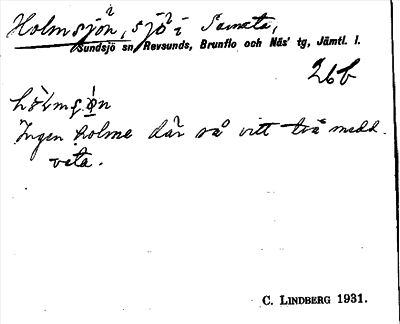 Holmsjön, sjö i Samsta,
Sundsjö sn, Revsunds, Brunflo och Näs' tg, Jämtl. l.
26b
Ingen holme där så vitt två medd.
veta.
C. LINDBERG 1931.